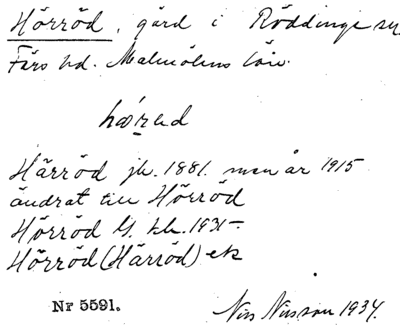 Hörröd, gård i Röddinge sn,
Färs hd. Malmöhus län.
hǿrɛd
Härröd jb. 1881. men år 1915
ändrat till Hörröd
Hörröd kb. 1931-
Hörröd (Härröd) ek
Nr 5591.
Nils Nilsson 1934.